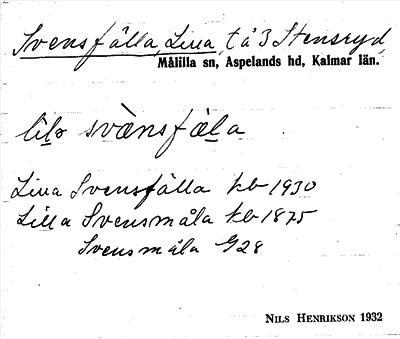 Svensfälla, Lilla, t å 3 Stensryd,
Målilla sn, Aspelands hd, Kalmar län.
lilə svänsfäla
Lilla Svensfälla kb 1930
Lilla Svensmåla kb 1875
Svensmåla G28
NILS HENRIKSON 1932